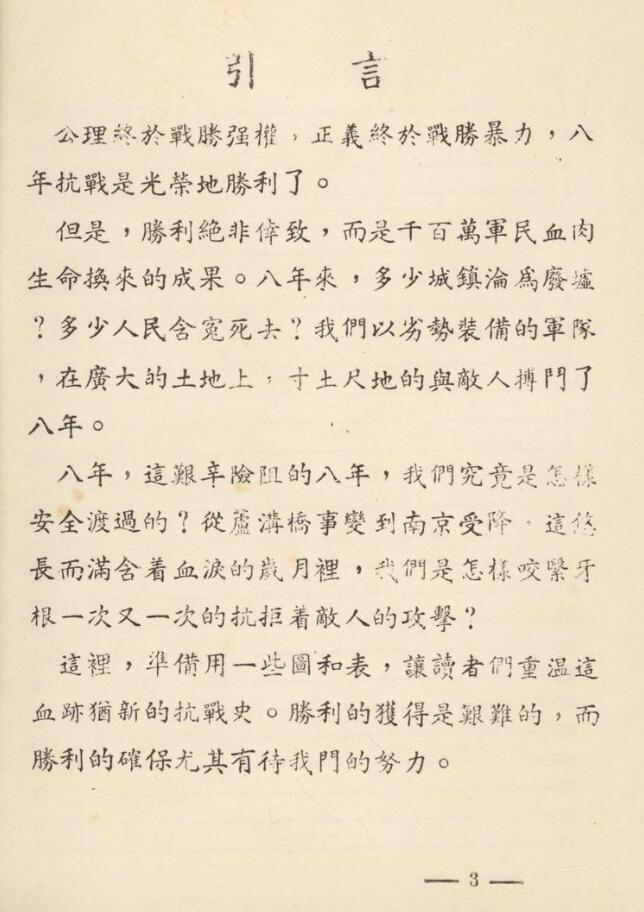 引言
公理終於戰勝强權，正義終於戰勝暴力，八
年抗戰是光榮地勝利了。
但是，勝利絕非倖致，而是千百萬軍民血肉
生命換來的成果。八年來，多少城鎮淪爲廢墟
？多少人民含寃死去？我們以劣勢裝備的軍隊
，在廣大的土地上，寸土尺地的與敵人搏鬥了
八年。
八年，這艱辛險阻的八年，我們究竟是怎樣
安全渡過的？從蘆溝橋事變到南京受降，這悠
長而滿含着血淚的歲月裡，我們是怎樣咬緊牙
根一次又一次的抗拒着敵人的攻擊？
這裡，準備用一些圖和表，讓讀者們重温這
血跡猶新的抗戰史。勝利的獲得是艱難的，而
勝利的確保尤其有待我門的努力。
— 3 —